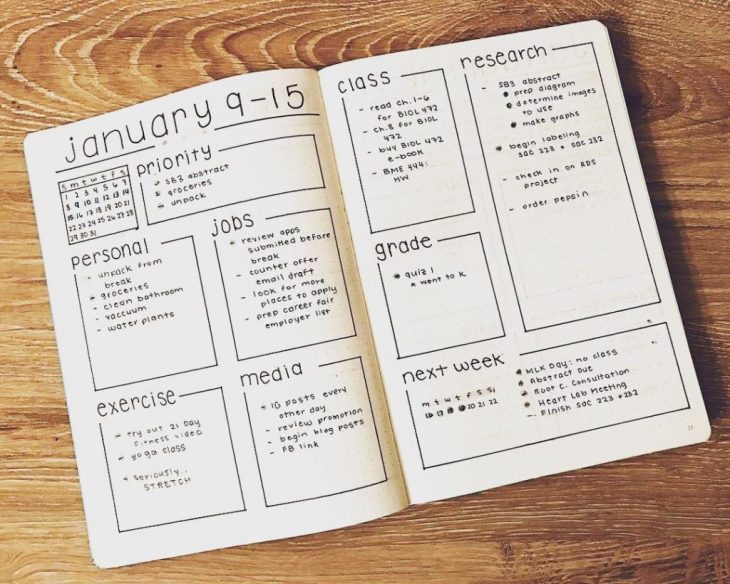 january 9-15
s m t w t f s
1 2 3 4 5 6 7
8 9 10 11 12 13 14
15 16 17 18 19 20 21
22 23 24 25 26 27 28
29 30 31
priority
SB3 abstract
groceries
unpack
personal
unpack from
break
groceries
- clean bathroom
- vaccuum
- water plants
jobs
review apps
submitted before
break
- counter offer
email draft
- look for more
places to apply
- prep career fair
employer list
exercise
- try out 21 Day
Fitness video
- yoga class
* seriously...
STRETCH
media
- IG posts every
other day
- review promotion
- begin blog posts
- FB link
class
- read ch. 1-6
for BIOL 472
- ch. 8 for BIOL
472
- buy BIOL 472
e-book
- BME 444:
HW
grade
quiz 1
* went to K
research
- SB3 abstract
• prep diagram
• determine images
to use
• make graphs
begin labeling
SAC 223 + SAC 232
- check in on RDS
project
- order pepsin
next week
m t w t f s s
16 17 18 19 20 21 22
MLK Day: no class
Abstract Due
Root C. Consultation
Heart Lab Meeting
- Finish SAC 223 + 232